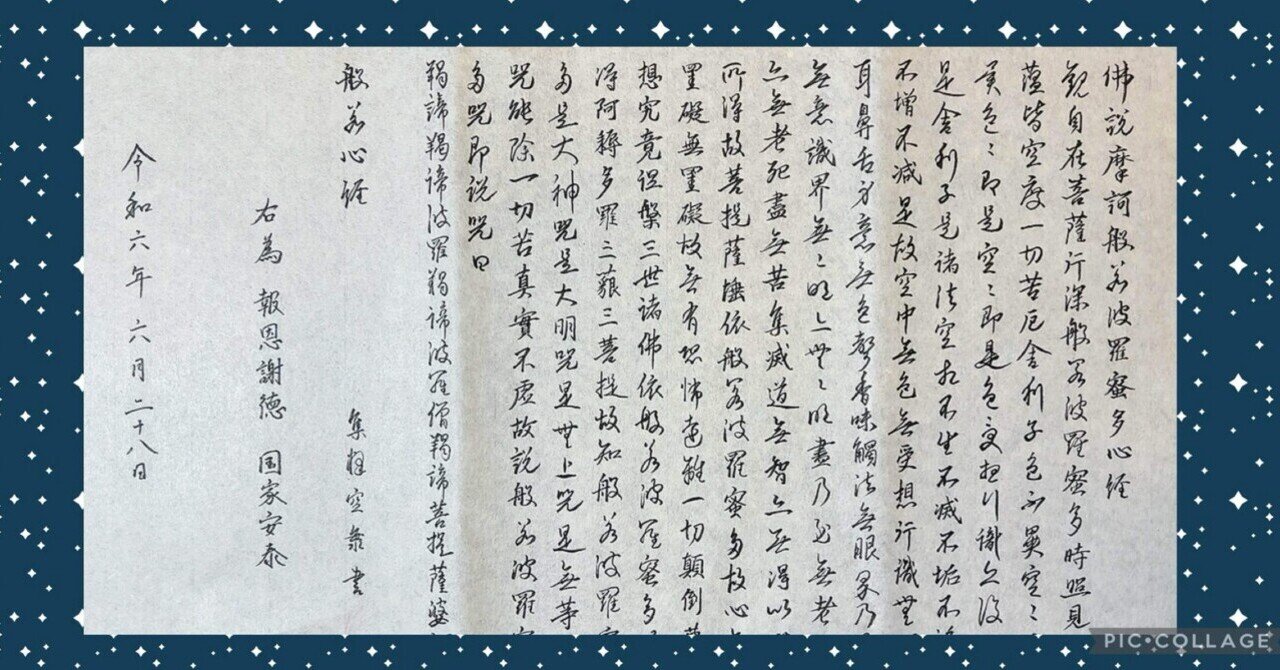 佛説摩訶般若波羅蜜多心経
観自在菩薩行深般若波羅蜜多時照見
蘊皆空度一切苦厄舎利子色不異空〻
異色〻即是空〻即是色受想行識亦復
是舎利子是諸法空相不生不滅不垢不
不増不減是故空中無色無受想行識無
耳鼻舌身意無色聲香味觸法無眼界乃
無意識界無〻明亦無〻明盡乃至無老
亦無老死盡無苦集滅道無智亦無得以
所得故菩提薩埵依般若波羅蜜多故心
罣礙無罣礙故無有恐怖遠離一切顛倒
想究竟涅槃三世諸佛依般若波羅蜜多
得阿耨多羅三藐三菩提故知般若波羅
多是大神咒是大明咒是無上咒是無等
咒能除一切苦真實不虚故説般若波羅
多咒即説咒曰
羯諦羯諦波羅羯諦波羅僧羯諦菩提薩婆
般若心経
集 空 書
右為 報恩謝徳 国家安泰
令和六年 六月二十八日
PIC•COLLAGE